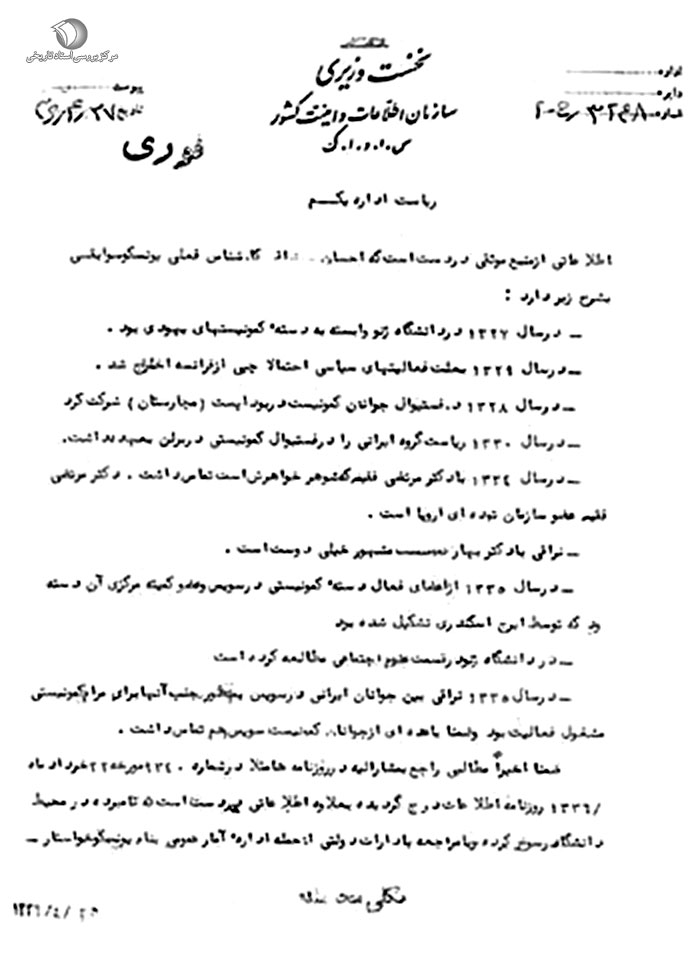 مرکز بررسی اسناد تاریخی
نخست وزیری
سازمان اطلاعات و امنیت کشور
س.ا.و.ا.ک
اداره
دایره
شماره
پیوست
فوری
ریاست اداره یکم
اطلاعاتی از منبع موثقی در دست است که احسان کارشناس فعلی یونسکو سوابقی
بشرح زیر دارد :
ـ در سال ۱۳۲۷ در دانشگاه ژنو وابسته به دسته کمونیستهای یهودی بود .
ـ در سال ۱۳۲۹ بعلت فعالیتهای سیاسی احتمالا چپی از فرانسه اخراج شد .
ـ در سال ۱۳۲۸ در فستیوال جوانان کمونیست در بوداپست (مجارستان) شرکت کرد
ـ در سال ۱۳۳۰ ریاست گروه ایرانی را در فستیوال کمونیستی در برلن بعهده داشت.
ـ در سال ۱۳۳٤ با دکتر مرتضی فقیه که شوهر خواهرش است تماس داشت . دکتر مرتضی
فقیه عضو سازمان توده ای اروپا است .
ـ نراقی با دکتر بهار مشهور خیلی دوست است .
ـ در سال ۱۳۳۵ از اعضای فعال دسته کمونیستی در سویس وعضو کمیته مرکزی آن دسته
بود که توسط ایرج اسکندری تشکیل شده بود
ـ در دانشگاه ژنو در قسمت علوم اجتماعی مطالعه کرده است
ـ در سال ۱۳۳۵ نراقی بین جوانان ایرانی در سویس بمنظور جلب آنها برای مرام کمونیستی
مشغول فعالیت بود وضمنا با عده ای از جوانان کمونیست سویس هم تماس داشت .
ضمنا اخیراً مطالبی راجع بمشارالیه در روزنامه ها مثلا در شماره مورخه ۲۲ خرداد ماه
۱۳۳٦/ روزنامه اطلاعات درج گردیده بعلاوه اطلاعاتی در دست است که نامبرده در محیط
دانشگاه رسوخ کرده وبا مراجعه بادارات دولتی از جمله اداره آمار عمومی بنام یونسکو خواستار ـ